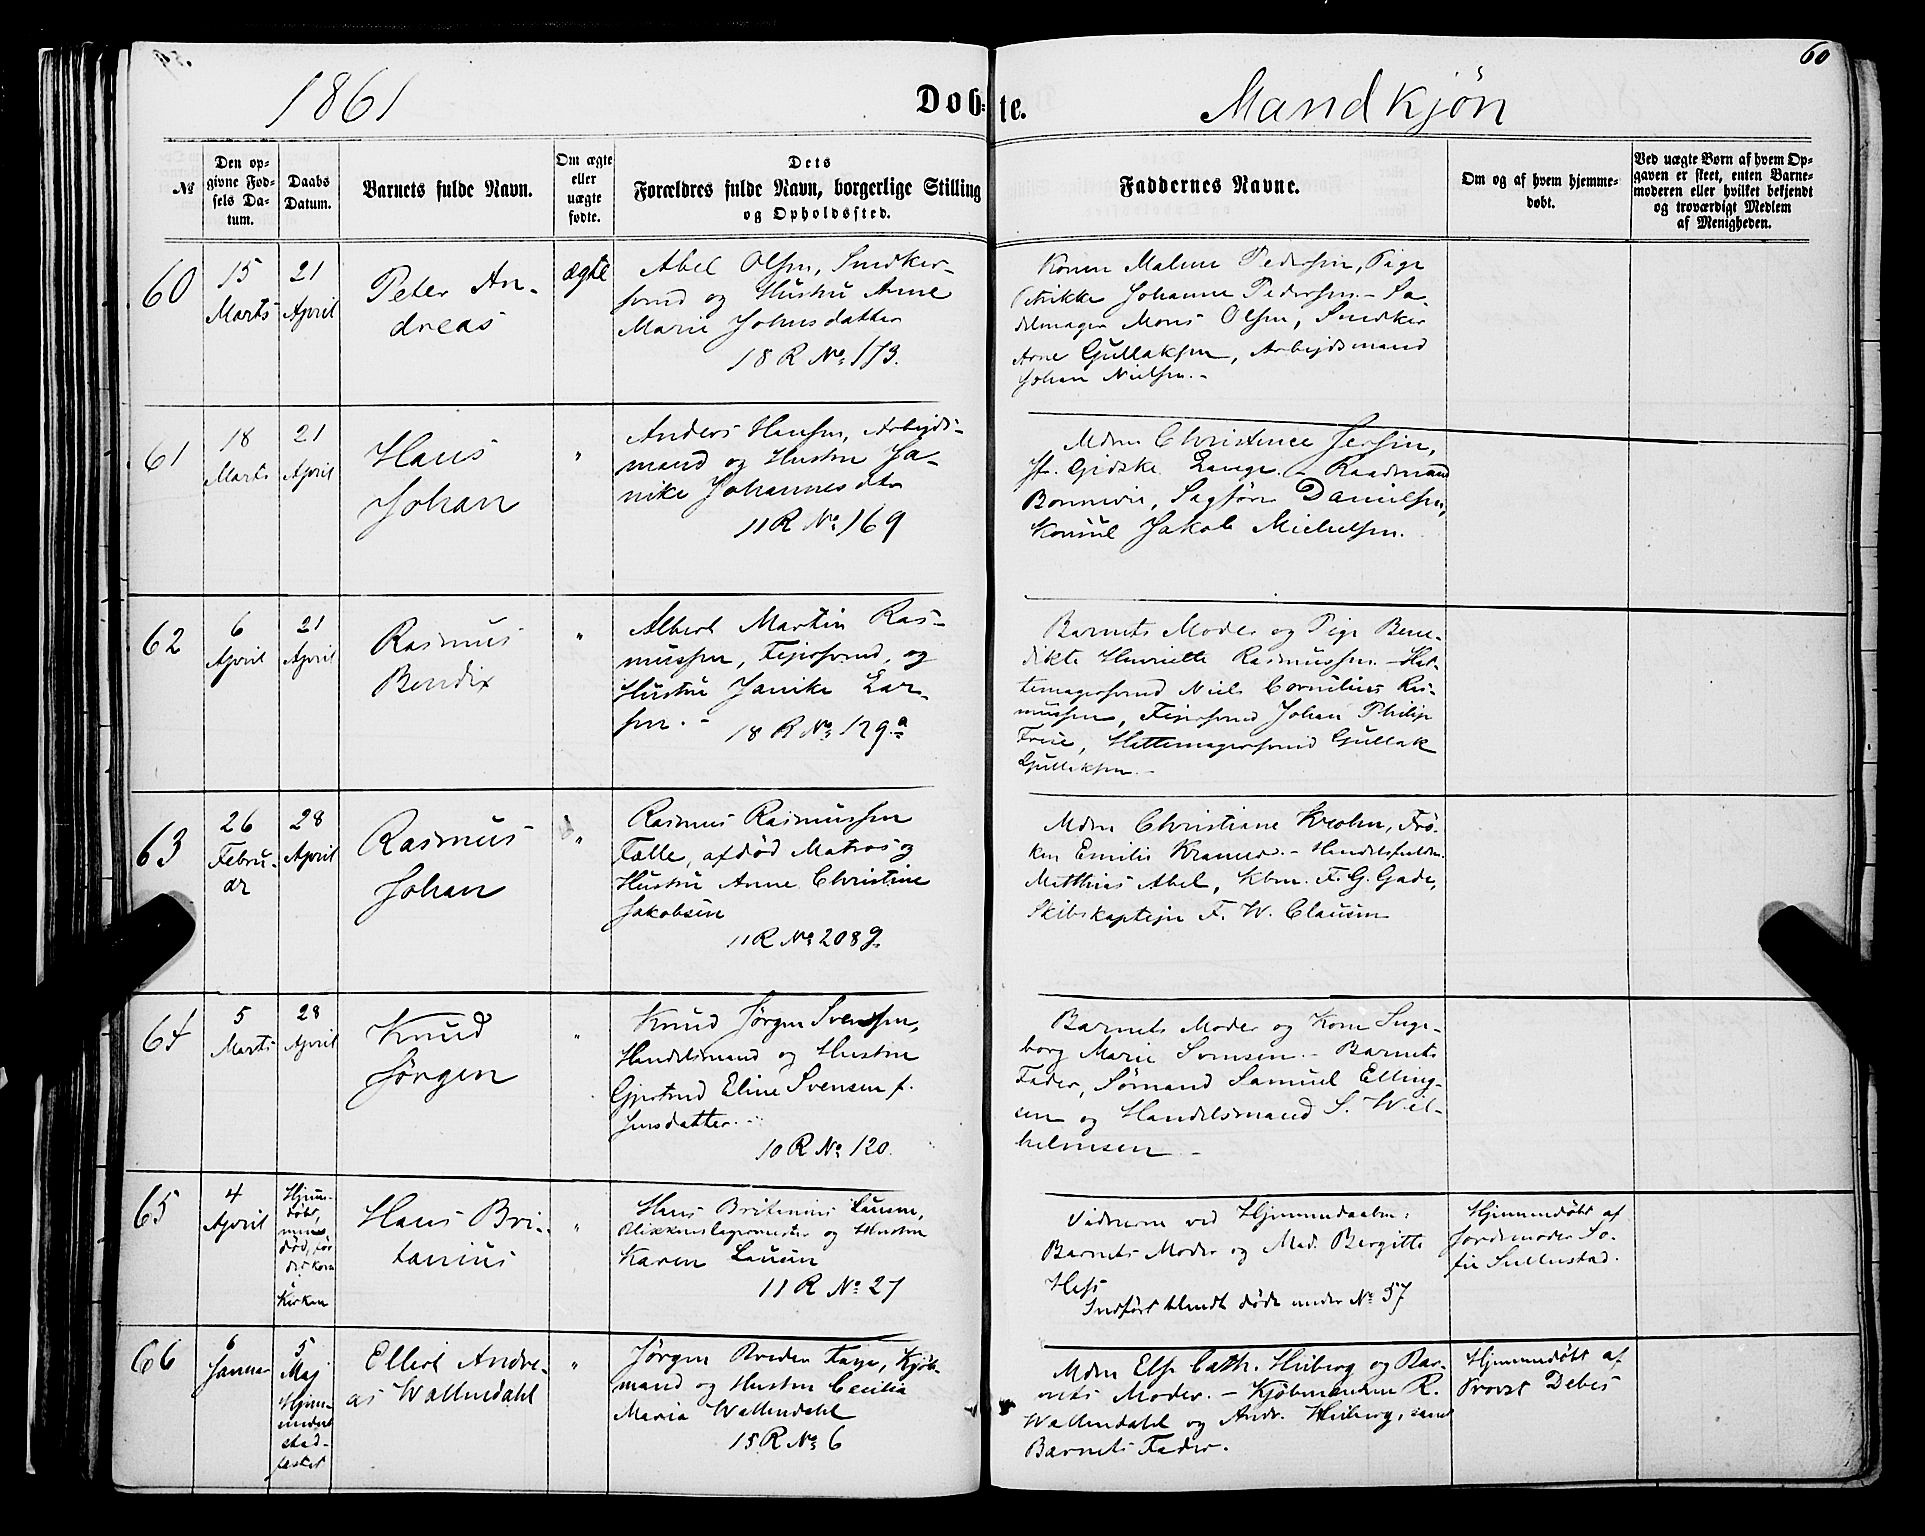 60
1861
Døbte.
Mandkjøn
№
Den opgivne Fødsels Datum.
Daabs Datum.
Barnets fulde Navn.
Om ægte eller uægte fødte.
Dets Forældres fulde Navn, borgerlige Stilling og Opholdssted.
Faddernes Navne.
Om og af hvem hjemmedøbt.
Ved uægte Børn af hvem Opgaven er skeet, enten Barnemoderen eller hvilket bekjendt og troværdigt Medlem af Menigheden.
60
15 Marts
21 April
Peter An-
dreas
ægte
Abel Olsen, Snedker-
svend og Hustru Anne
Marie Johnsdatter
18 R № 173.
Konen Malene Pedersen, Pige
Petrikke Johanne Pedersen. – Sa-
delmager Mons Olsen, Snedker
Arne Gullaksen, Arbejdsmand
Johan Nielsen. –
61
18 Marts
21 April
Hans
Johan
"
Anders Hansen, Arbejds-
mand og Hustru Ja-
nike Johannesdtr
11 R № 169
Mdm Christence Jersin,
Gidske Lange. – Raadmand
Bonnevie, Sagfører Danielsen,
Konsul Jakob Michelsen.
62
6 April
21 April
Rasmus
Bendix
"
Albert Martin Ras-
mussen, Fejersvend, og
Hustru Janike Lar-
sen. –
18 R № 129 a
Barnets Moder og Pige Bene-
dikte Henriette Rasmussen. – Hat-
temagersvend Niels Cornelius Ras-
mussen, Fejersvend Johan Philip
Hattemagersvend Gullak
Gullaksen. –
63
26 Febru-
ar
28 April
Rasmus
Johan
"
Rasmus Rasmussen
Fælle, afdød Matros og
Hustru Anne Christine
Jakobsen
11 R № 208 g
Mdm Christiane Krohn, Frø-
ken Emilie Kramer. –
Matthias Abel, Kbm. F. G. Gade,
Skibskaptejn F. W. Clausen
64
5 Marts
28 April
Knud
Jørgen
"
Knud Jørgen Svensen,
Handelsmand og Hustru
Gjertrud Eline Svensen f.
Jensdatter. –
10 R № 120.
Barnets Moder og Kone Inge-
borg Marie – Barnets
Fader, Sømand Samuel Elling-
sen og Handelsmand S. Wil-
helmsen –
65
4 April
Hjem-
døbt,
men
død, før
det kom
i
Kirken
Hans Bri-
tanius
"
Hans Britanius Lausen,
Blikkenslagermester og Hustru
Karen Lausen
11 R № 27
Vidnerne ved Hjemmedaaben:
Barnets Moder og Mad. Bergitte
Hess
Indført blandt døde under № 57
Hjemmedøbt af
Jordemoder So-
fie Sellestad.
66
6 Januar
5 Maj
Hjem-
medaab
stad-
fæstet
Ellert Andre-
as Wallendahl
"
Jørgen Breder Faye, Kjøb-
mand og Hustru Cecilia
Maria Wallendahl
15 R № 6
Mdm Else Cath. Heiberg og Bar-
nets Moder. – Kjøbmændene R.
Wallendahl og Andr. Heiberg, samt
Barnets Fader.
Hjemmedøbt af
Provst Debes